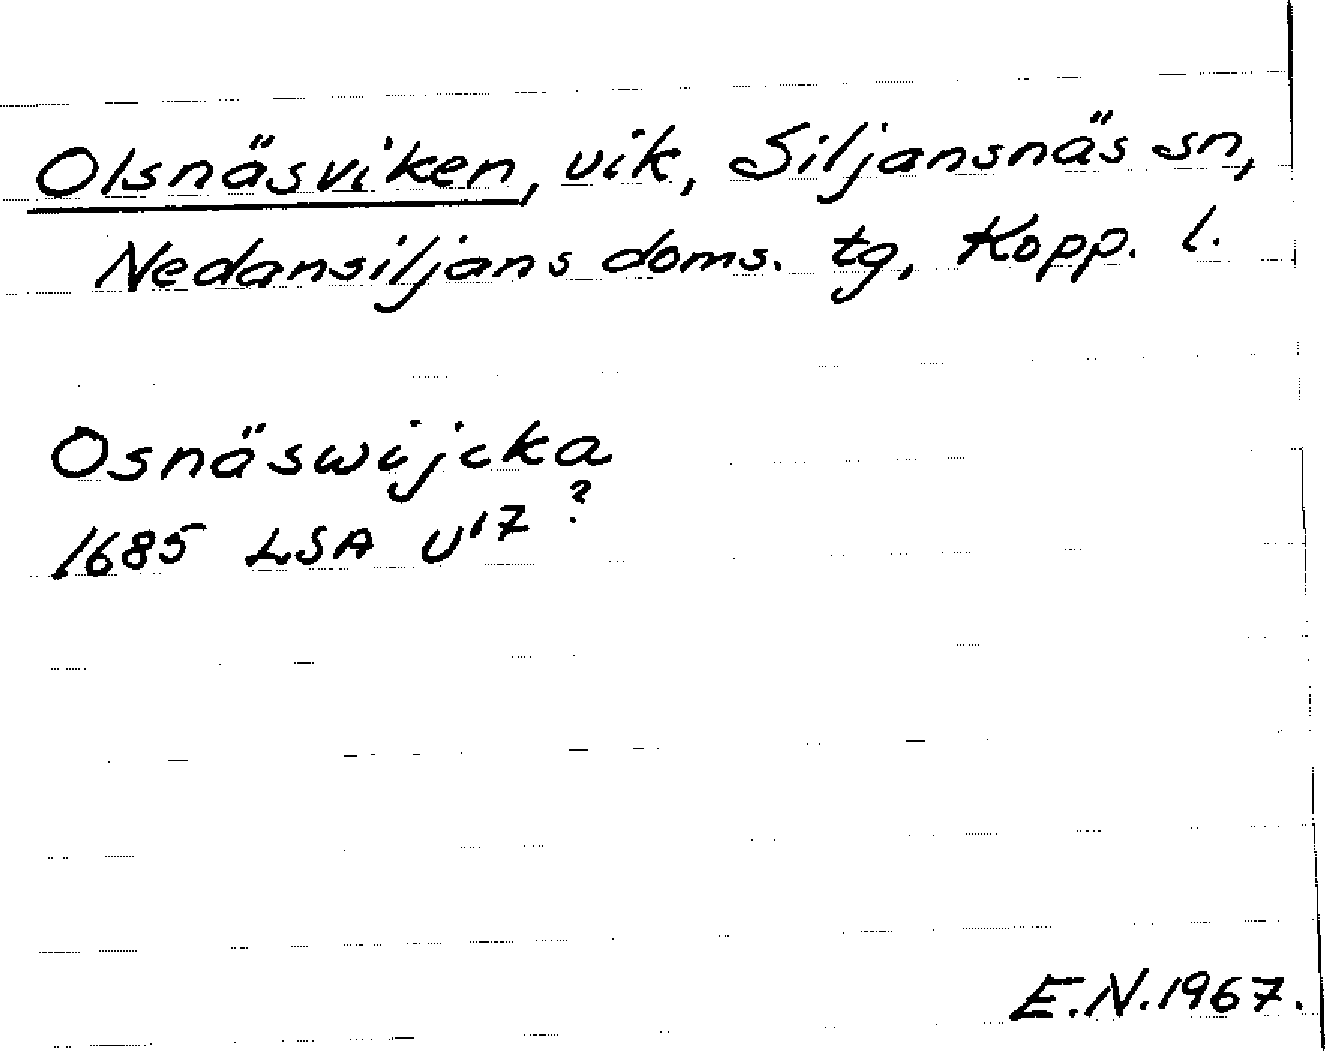 Olsnäsviken, vik, Siljansnäs sn,
Nedansiljans doms. tg, Kopp. l.
Osnäswijcka
1685 LSA U17 ?
E.N. 1967.